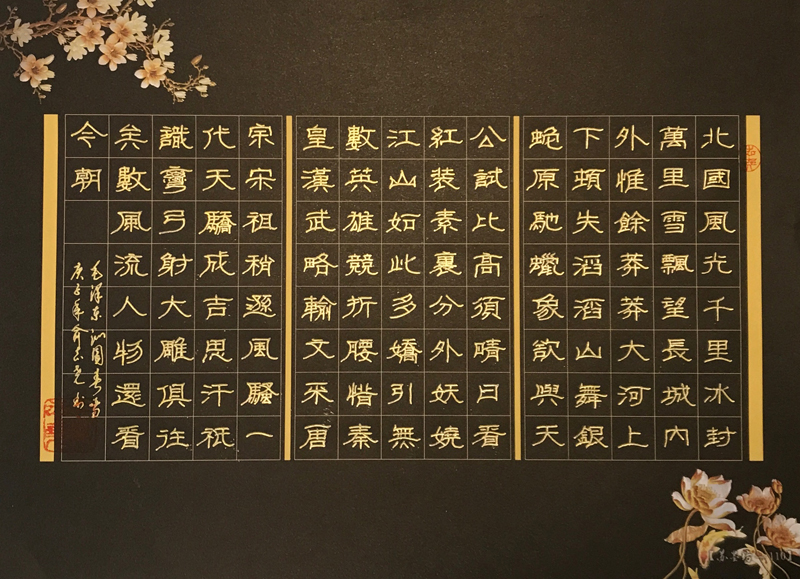 北國風光千里冰封
萬里雪飄望長城內
外惟餘莽莽大河上
下頓失滔滔山舞銀
蛇原馳蠟象欲與天
公試比高須晴日看
紅裝素裹分外妖嬈
江山如此多嬌引無
數英雄競折腰惜秦
皇漢武略輸文采唐
宗宋祖稍遜風騷一
代天驕成吉思汗祇
識彎弓射大雕俱往
矣數風流人物還看
今朝
毛澤東沁園春雪
庚子年